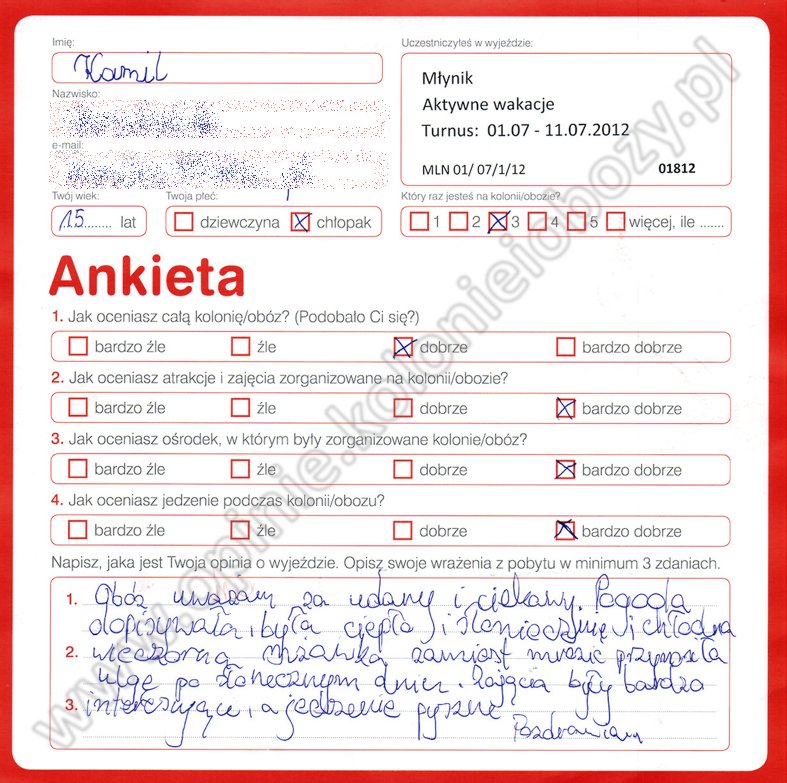 Imię:
Kamil
Uczestniczyłeś w wyjeździe:
Młynik
Aktywne wakacje
Turnus: 01.07 - 11.07.2012
MLN 01/ 07/1/12 01812
Nazwisko:
e-mail:
Twój wiek:
15 lat
Twoja płeć:
dziewczyna chłopak
Który raz jesteś na kolonii/obozie?
1 2 3 4 5 więcej, ile .......
Ankieta
1. Jak oceniasz całą kolonię/obóz? (Podobało Ci się?)
bardzo źle źle dobrze bardzo dobrze
2. Jak oceniasz atrakcje i zajęcia zorganizowane na kolonii/obozie?
bardzo źle źle dobrze bardzo dobrze
3. Jak oceniasz ośrodek, w którym były zorganizowane kolonie/obóz?
bardzo źle źle dobrze bardzo dobrze
4. Jak oceniasz jedzenie podczas kolonii/obozu?
bardzo źle źle dobrze bardzo dobrze
Napisz, jaka jest Twoja opinia o wyjeździe. Opisz swoje wrażenia z pobytu w minimum 3 zdaniach.
1. Obóz uważam za udany i ciekawy. Pogoda
dopisywała, była ciepło i słonecznie, i chłodna
2. wieczorna mżawka zamiast mrozić przynosiła
ulgę po słonecznym dniu. Zajęcia były bardzo
3. interesujące, a jedzenie pyszne
Pozdrawiam
www.opinie.kolonieiobozy.pl